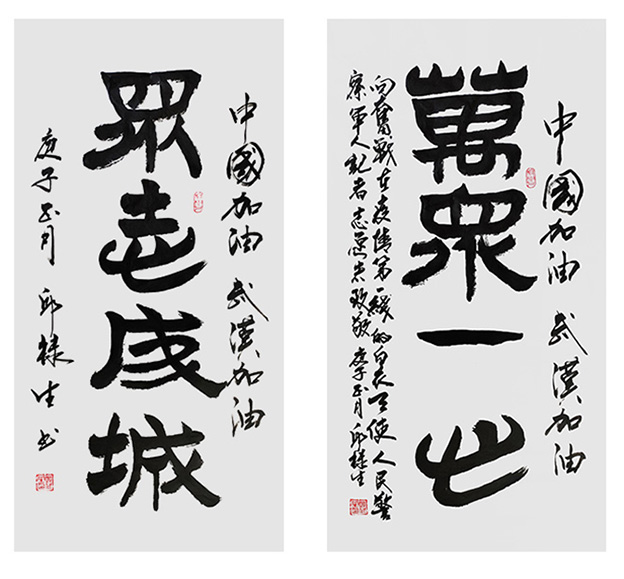 中國加油 武漢加油
萬眾一心
向奮戰在疫情第一綫的白衣天使人民警
察軍人記者志愿者致敬 庚子正月 邱祿生
中國加油 武漢加油
眾志成城
庚子正月 邱祿生书